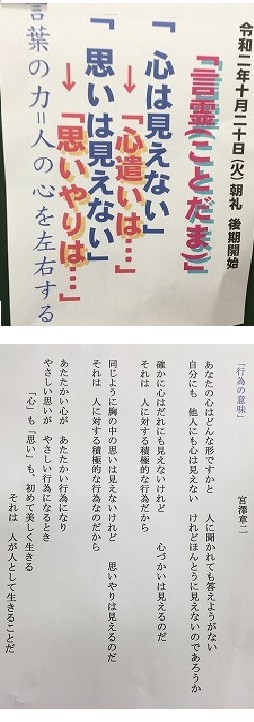 令和二年十月二十日(火)朝礼 後期開始
「言霊(ことだま)」
「心は見えない」
→「心遣いは…」
「思いは見えない」
→「思いやりは…」
言葉の力=人の心を左右する
「行為の意味」
宮澤章二
あなたの心はどんな形ですかと 人に聞かれても答えようがない
自分にも 他人にも心は見えない けれどほんとうに見えないのであろうか
確かに心はだれにも見えないけれど 心づかいは見えるのだ
それは 人に対する積極的な行為だから
同じように胸の中の思いは見えないけれど 思いやりは見えるのだ
それは 人に対する積極的な行為なのだから
あたたかい心が あたたかい行為になり
やさしい思いが やさしい行為になるとき
「心」も「思い」も、初めて美しく生きる
それは 人が人として生きることだ